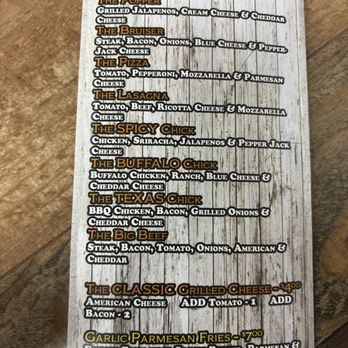 The Popper
Grilled Jalapenos, Cream Cheese & Cheddar
Cheese
The Bruiser
Steak, Bacon, Onions, Blue Cheese & Pepper
Jack Cheese
The Pizza
Tomato, Pepperoni, Mozzarella & Parmesan
Cheese
The Lasagna
Tomato, Beef, Ricotta Cheese & Mozzarella
Cheese
The SPICY Chick
Chicken, Sriracha, Jalapenos & Pepper Jack
Cheese
The BUFFALO Chick
Buffalo Chicken, Ranch, Blue Cheese &
Cheddar Cheese
The TEXAS Chick
BBQ Chicken, Bacon, Grilled Onions &
Cheddar Cheese
The Big Beef
Steak, Bacon, Tomato, Onions, American &
Cheddar
The CLASSIC Grilled Cheese - $4.00
American Cheese ADD Tomato - 1 ADD
Bacon - 2
Garlic Parmesan Fries - $7.00
Parmesan &